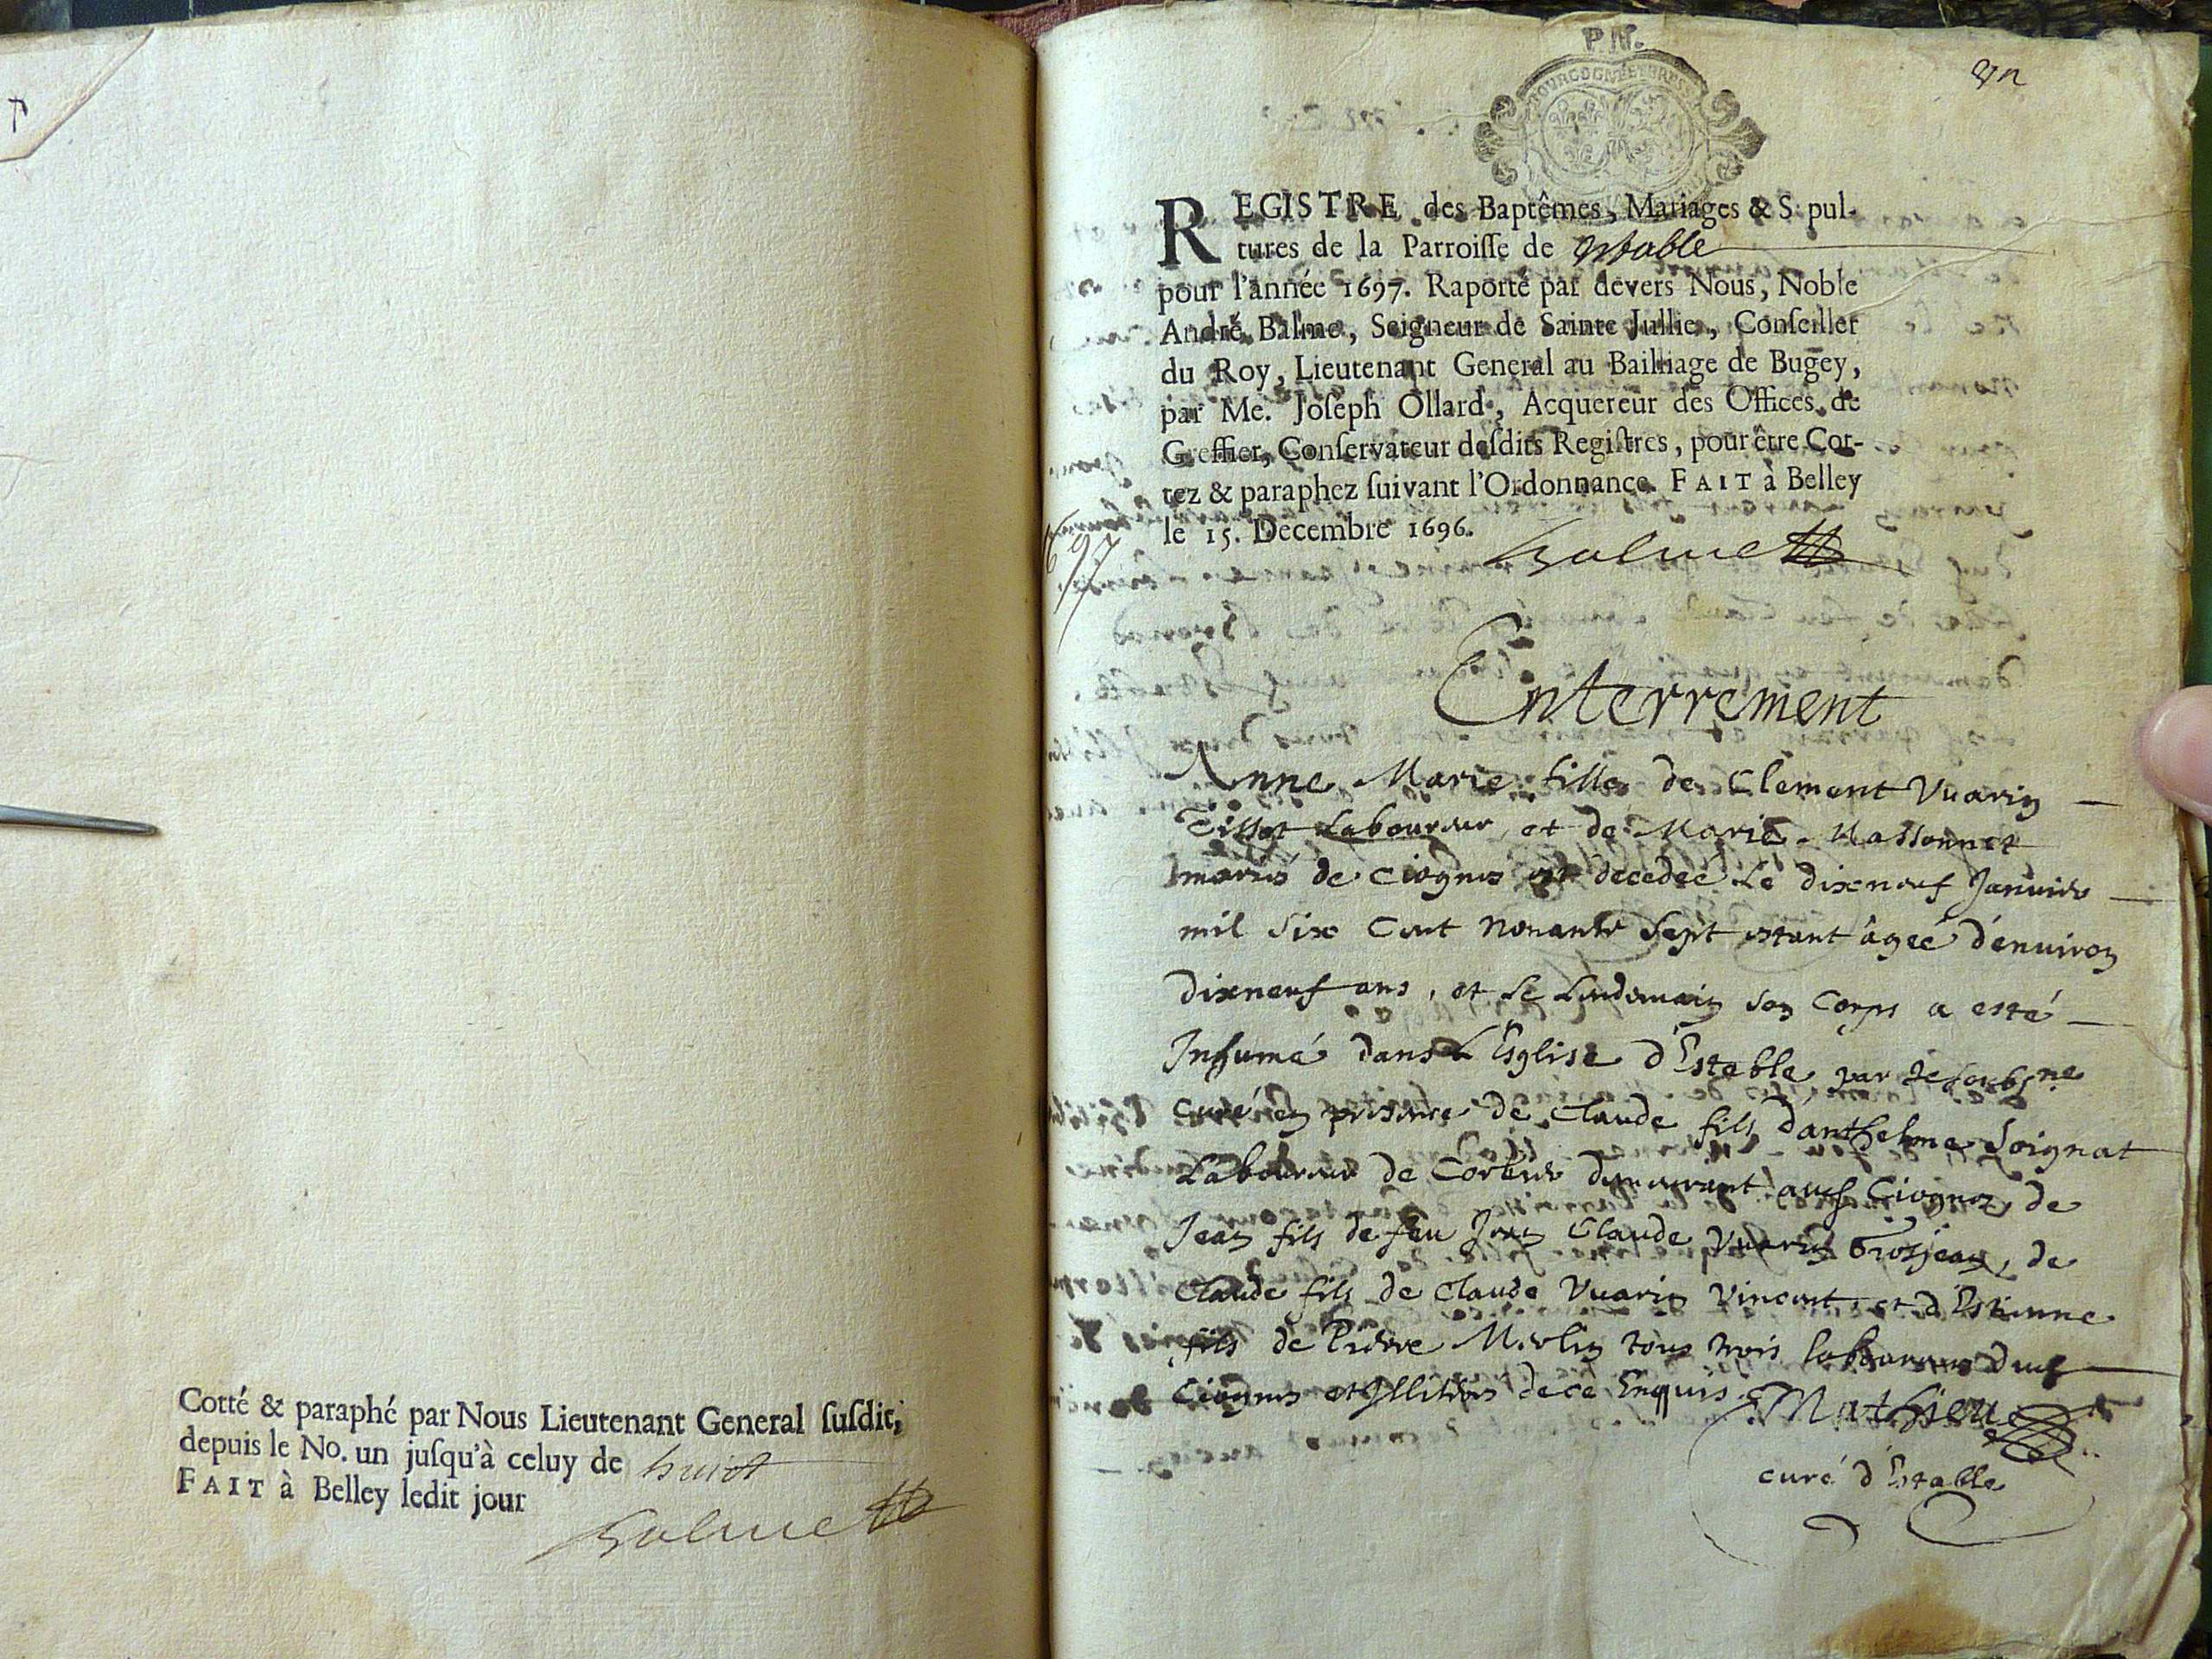 Cotté & paraphé par Nous Lieutenant General ſuſdit,
depuis le No. un juſqu'à celuy de huict
FAIT à Belley ledit jour
Balme
P. N.
un
REGISTRE des Baptêmes, Mariages & S pul-
tures de la Parroiſſe de estable
pour l'année 1697. Raporté par devers Nous, Noble
André Balme, Seigneur de Sainte Jullie, Conſeiller
du Roy, Lieutenant General au Bailliage de Bugey,
par Me. Joſeph Ollard, Acquereur des Offices de
Greffier, Conſervateur deſdits Regiſtres, pour être Cot-
tez & paraphez ſuivant l'Ordonnance. FAIT à Belley
le 15. Decembre 1696.
Balme
1697
Enterrement
Anne Marie fille de Clement Vuarin
Tissot Laboureur et de Marie Massonnet
mariés de Ciognes est decedeé Le dixneuf Januier
mil six Cent nonante Sept estant âgeé d'enuiron
dixneuf ans, et Le Lendemain son Corps a esté
Inhumé dans L'Esglise d'Estable par Je soubsne
Curé en presence de Claude fils d'anthelme Soignat
Laboureur de Corbier demeurant Ciognez, de
Jean fils de feu Jean Claude Vuarin Grosjean, de
Claude fils de Claude Vuarin Vincent, et d'Estienne
fils de Pierre Merlin tous trois laboureurs dud
Ciognes et Illiterés de ce Enquis. Mathieu
curé d'Estable